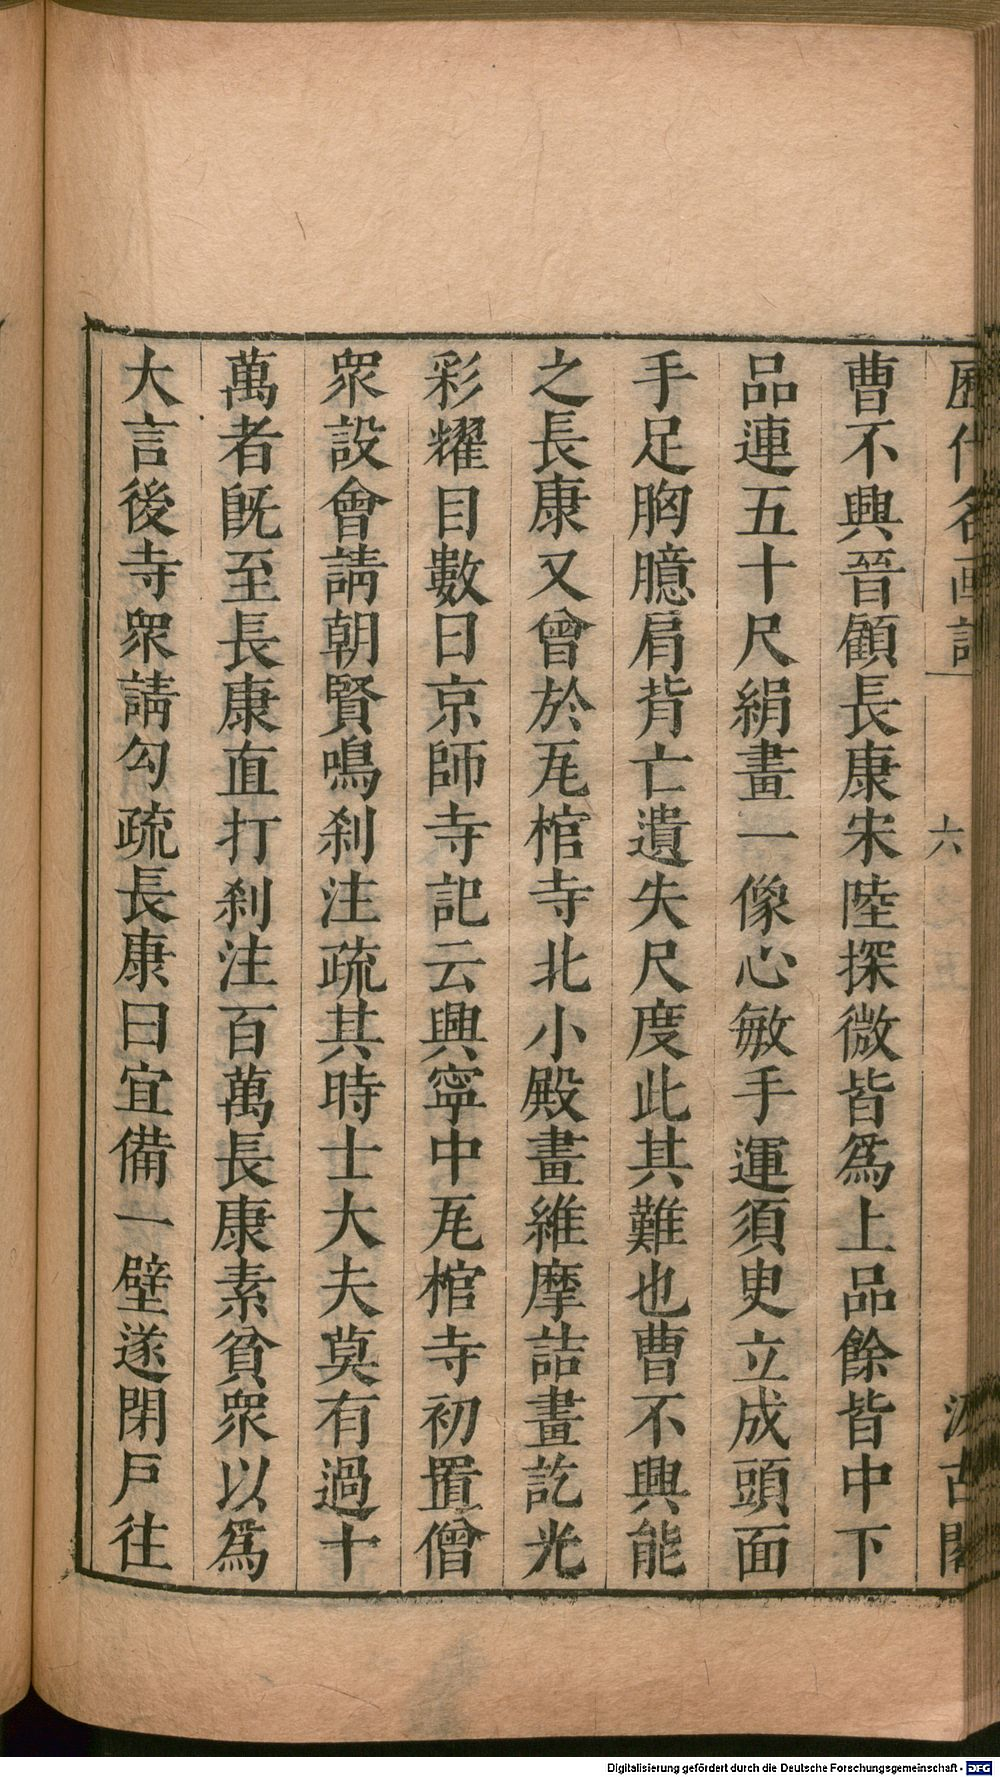 歷代名画記一 六 汲古閣
曹不興晉顧長康宋陸探微皆爲上品餘皆中下
品連五十尺絹畫一像心敏手運須㬰立成頭面
手足胸臆肩背亡遺失尺度此其難也曹不興能
之長康又曾於瓦棺寺北小殿畫維摩詰畫訖光
彩耀目數日京師寺記云興寧中瓦棺寺初置僧
衆設會請朝賢鳴刹注疏其時士大夫莫有過十
萬者旣至長康直打刹注百萬長康素貧衆以爲
大言後寺衆請勾疏長康曰宜備一壁遂閉戶往
Digitalisierung gefördert durch die Deutsche Forschungsgemeinschaft - DFG